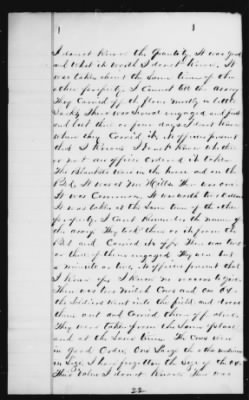 I do not know the quantity. It was good
and what its worth I do not know. It
was taken about the same time of the
other property. I cannot tell the army
They carried off the flour mostly in little
sacks. There was several engaged and just
and but three or four days I dont know
where they carried it, no officers present
that I know. I dont know whether
or not any officer ordered it taken.
The Blankets were in the house and on the
Bed. It was at Mr Hills. There was one
It was common.
It was taken at the same time of the other
property. I cant remember the name of
the army. They took them or it from the
Bed and carried it off. There was two
or three of them engaged. They were but
a minute or two, no officer present that
I know of. I know no vouchers
There was two Milch Cows and one Ox
the soldiers went into the field and drove
them out and carried them off alive.
They was taken from the same place
and at the same time. The Cows were
in good order, one large the other medium
in size. I have forgotten the size of the ox.
Their value I do not know. There was
22